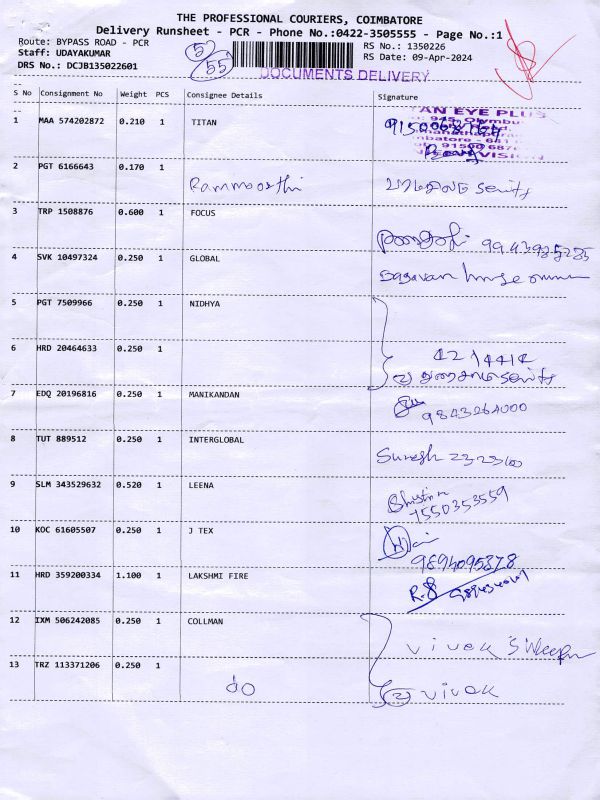 THE PROFESSIONAL COURIERS, COIMBATORE
Delivery Runsheet - PCR - Phone No.:0422-3505555 - Page No.:1
Route: BYPASS ROAD - PCR
Staff: UDAYAKUMAR
DRS No.: DCJB135022601
52
55
RS No.: 1350226
RS Date: 09-Apr-2024
DOCUMENTS DELIVERY
S No Consignment No Weight PCS Consignee Details Signature
1 MAA 574202872 0.210 1 TITAN
AN EYE PLUS
2 PGT 6166643 0.170 1 Rammoorthi
3 TRP 1508876 0.600 1 FOCUS
4 SVK 10497324 0.250 1 GLOBAL
5 PGT 7509966 0.250 1 NIDHYA
6 HRD 20464633 0.250 1
7 EDQ 20196816 0.250 1 MANIKANDAN 9843264000
8 TUT 889512 0.250 1 INTERGLOBAL Suresh
9 SLM 343529632 0.520 1 LEENA 7550353559
10 KOC 61605507 0.250 1 J TEX 9894095878
11 HRD 359200334 1.100 1 LAKSHMI FIRE
12 IXM 506242085 0.250 1 COLLMAN vivek
13 TRZ 113371206 0.250 1 do (2) vivek